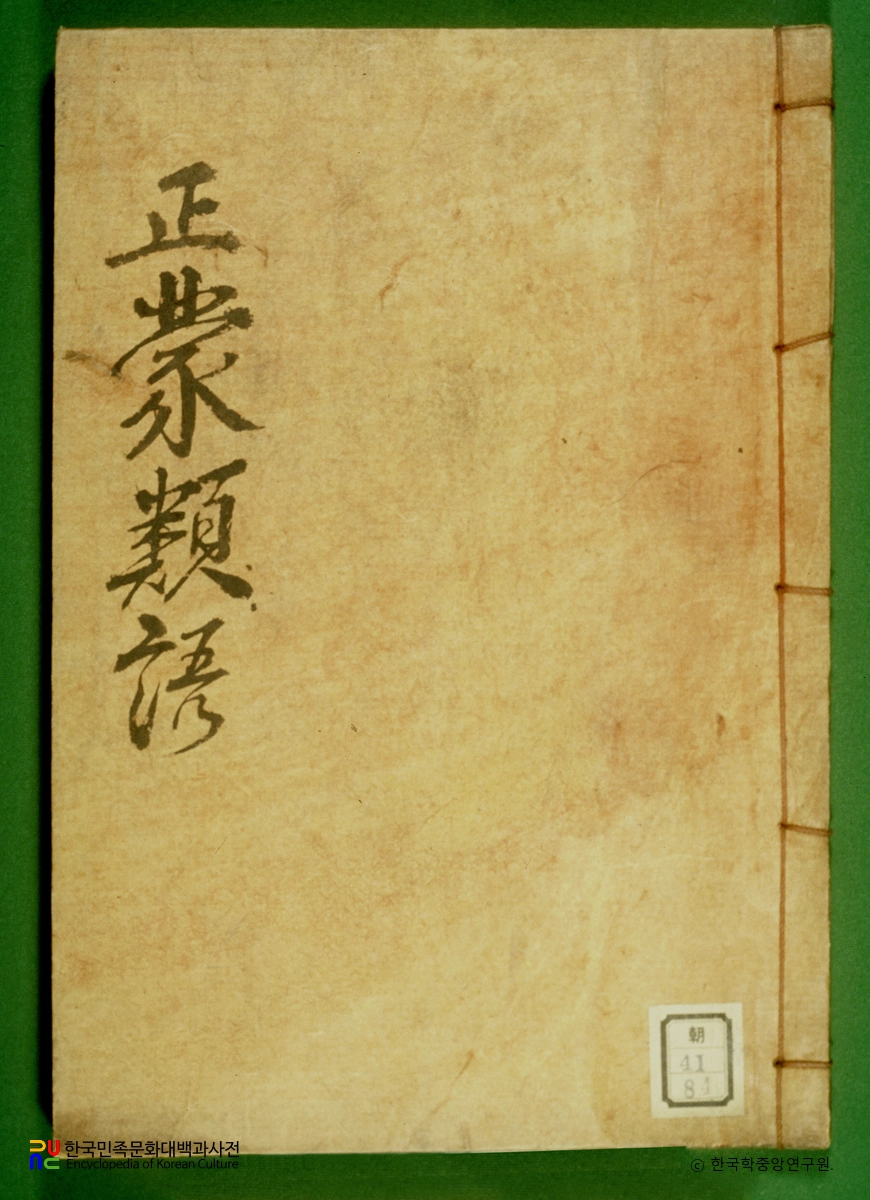 正蒙類語
朝
41
84
한국민족문화대백과사전
Encyclopedia of Korean Culture
ⓒ 한국학중앙연구원.